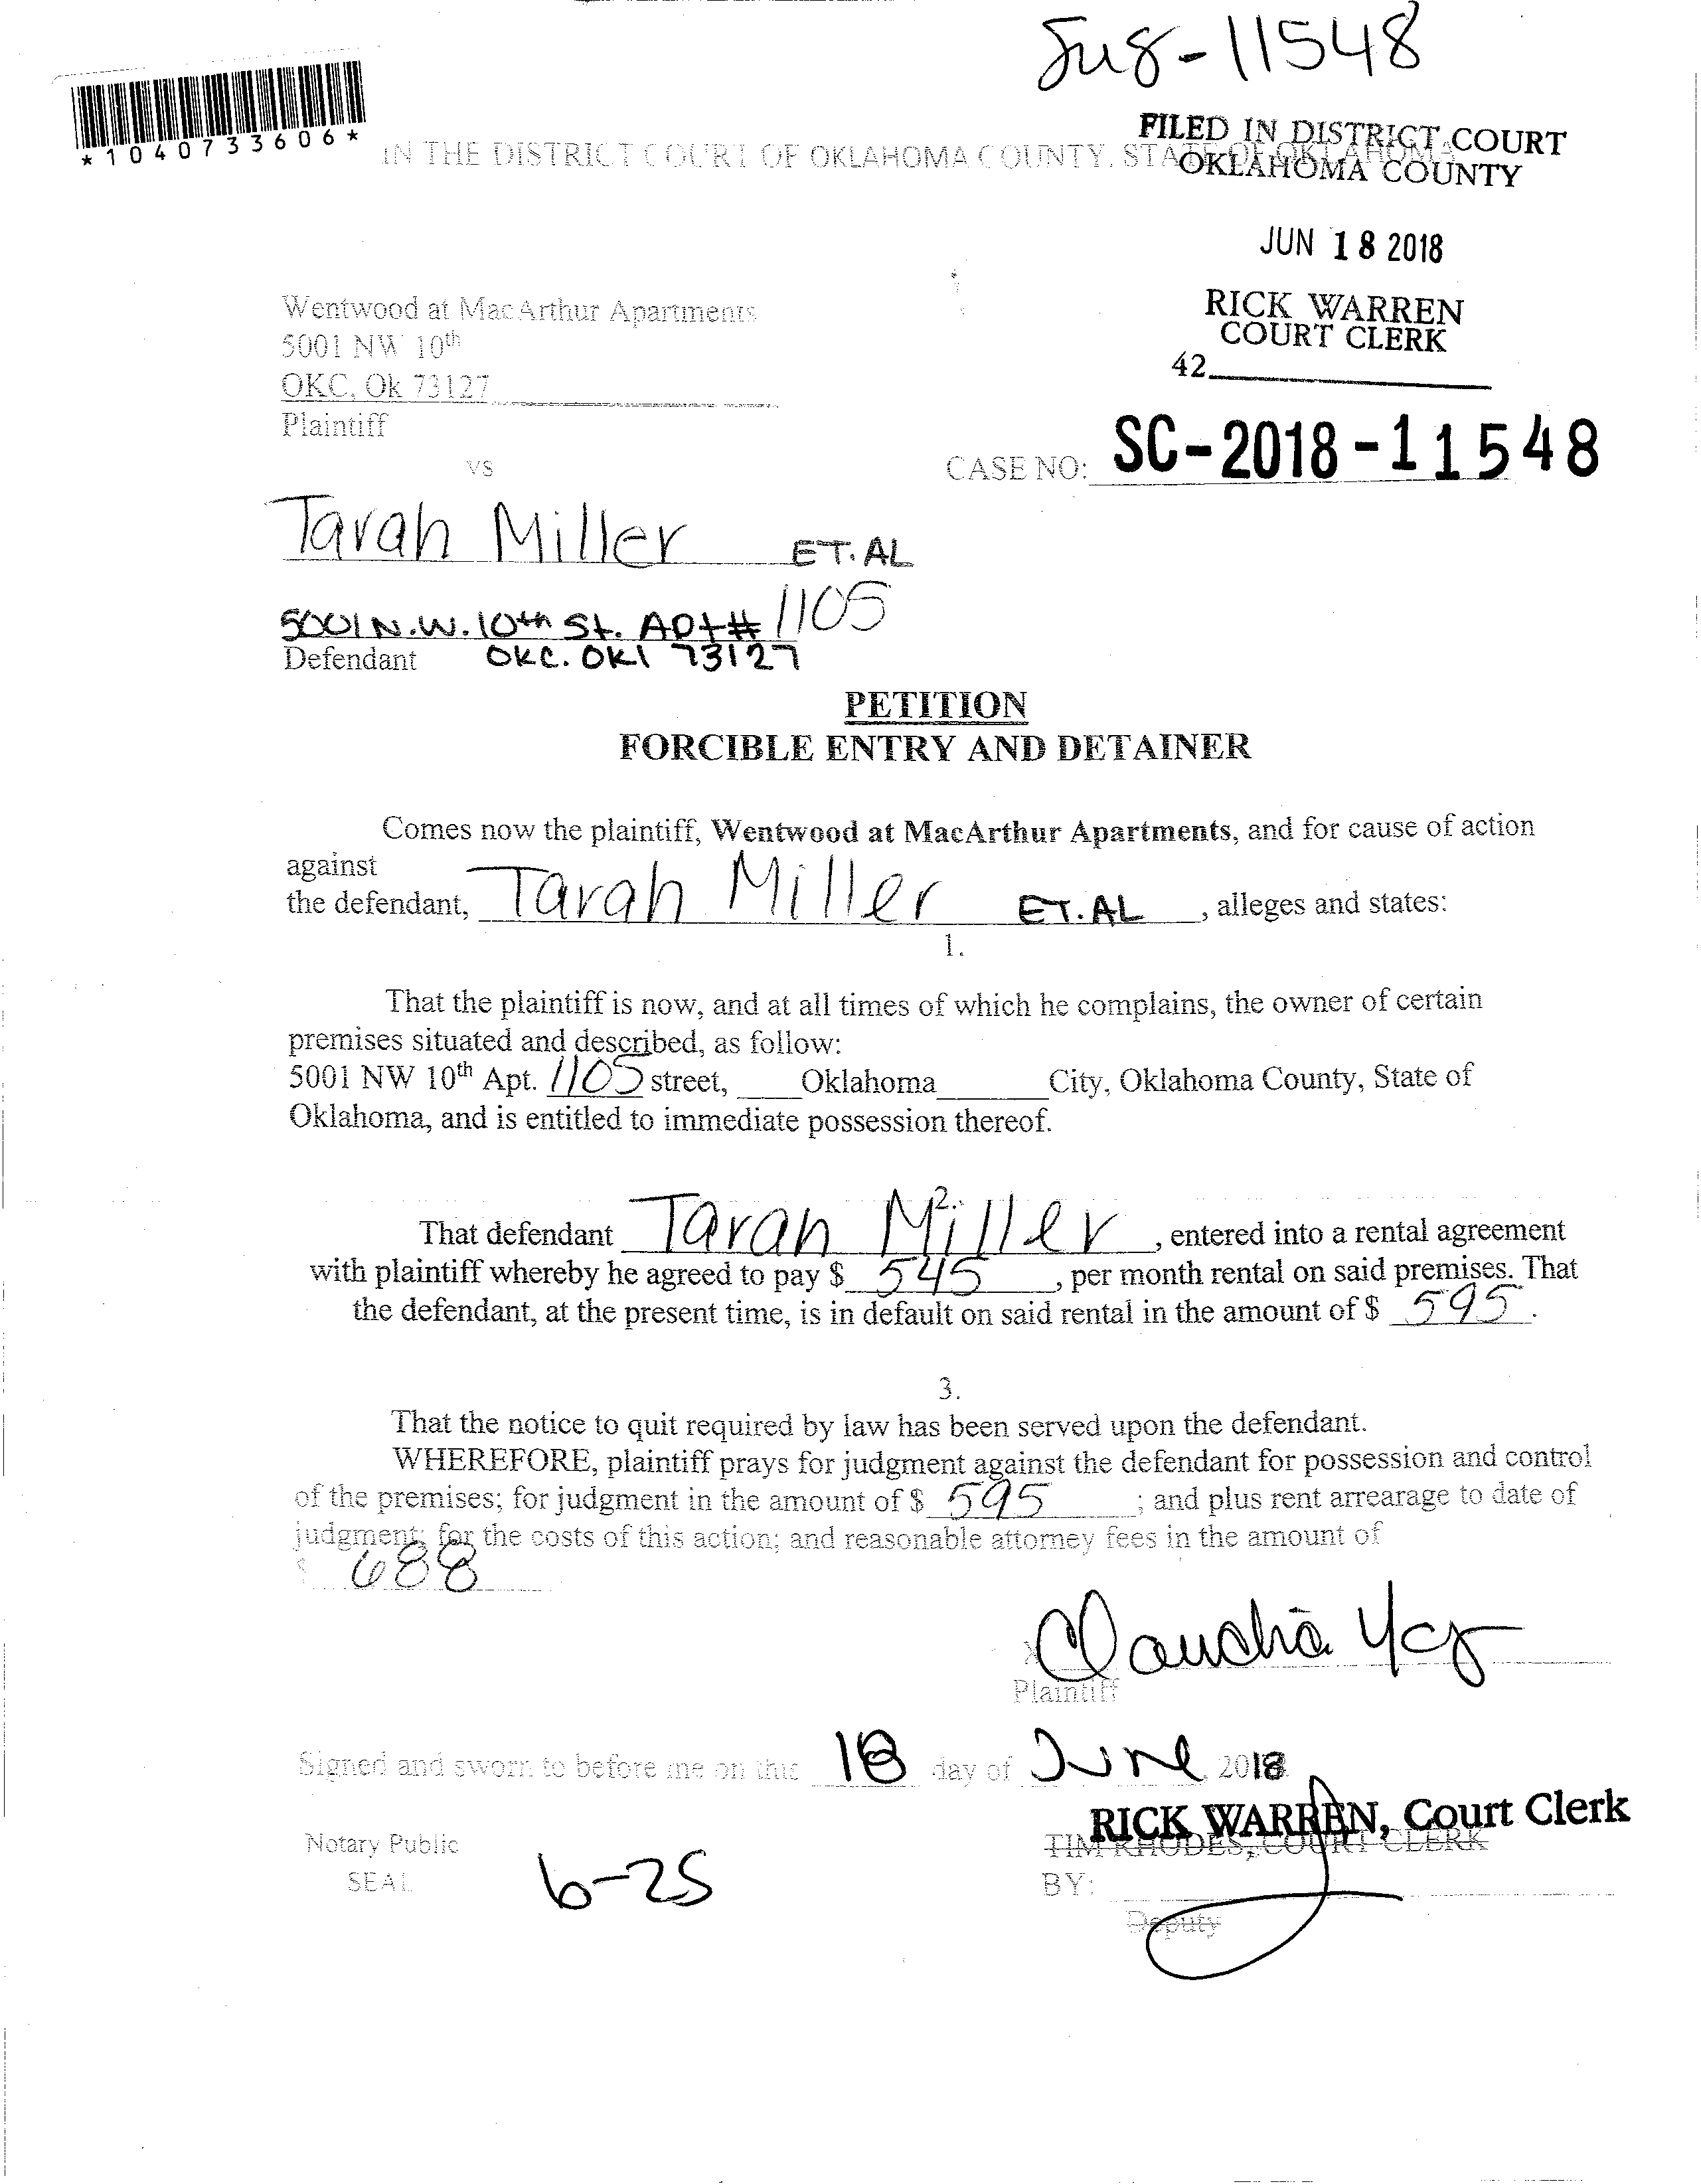 Jug-11548
*1040733606*
FILED IN DISTRICT COURT
IN THE DISTRICT COURT OF OKLAHOMA COUNTY, STATE OF OKLAHOMA
OKLAHOMA COUNTY
JUN 18 2018
Wentwood at MacArthur Apartments
RICK WARREN
5001 NW 10th
COURT CLERK
OKC, Ok 73127
42
Plaintiff
vs
CASE NO: SC-2018-11548
Tarah Miller ET. AL
5001 N.W. 10th St. Apt# 1105
Defendant OKC. OKl 73127
PETITION
FORCIBLE ENTRY AND DETAINER
Comes now the plaintiff, Wentwood at MacArthur Apartments, and for cause of action
against
the defendant, Tarah Miller ET. AL, alleges and states:
1.
That the plaintiff is now, and at all times of which he complains, the owner of certain
premises situated and described, as follow:
5001 NW 10th Apt. 1105 street, Oklahoma City, Oklahoma County, State of
Oklahoma, and is entitled to immediate possession thereof.
2.
That defendant Tarah Miller, entered into a rental agreement
with plaintiff whereby he agreed to pay $ 545, per month rental on said premises. That
the defendant, at the present time, is in default on said rental in the amount of $ 595.
3.
That the notice to quit required by law has been served upon the defendant.
WHEREFORE, plaintiff prays for judgment against the defendant for possession and control
of the premises; for judgment in the amount of $ 595; and plus rent arrearage to date of
judgment; for the costs of this action; and reasonable attorney fees in the amount of
$ 688
Claudia
Plaintiff
Signed and sworn to before me on this 18 day of June, 2018
RICK WARREN, Court Clerk
Notary Public TIM RHODES, COURT CLERK
SEAL 6-25 BY:
Deputy